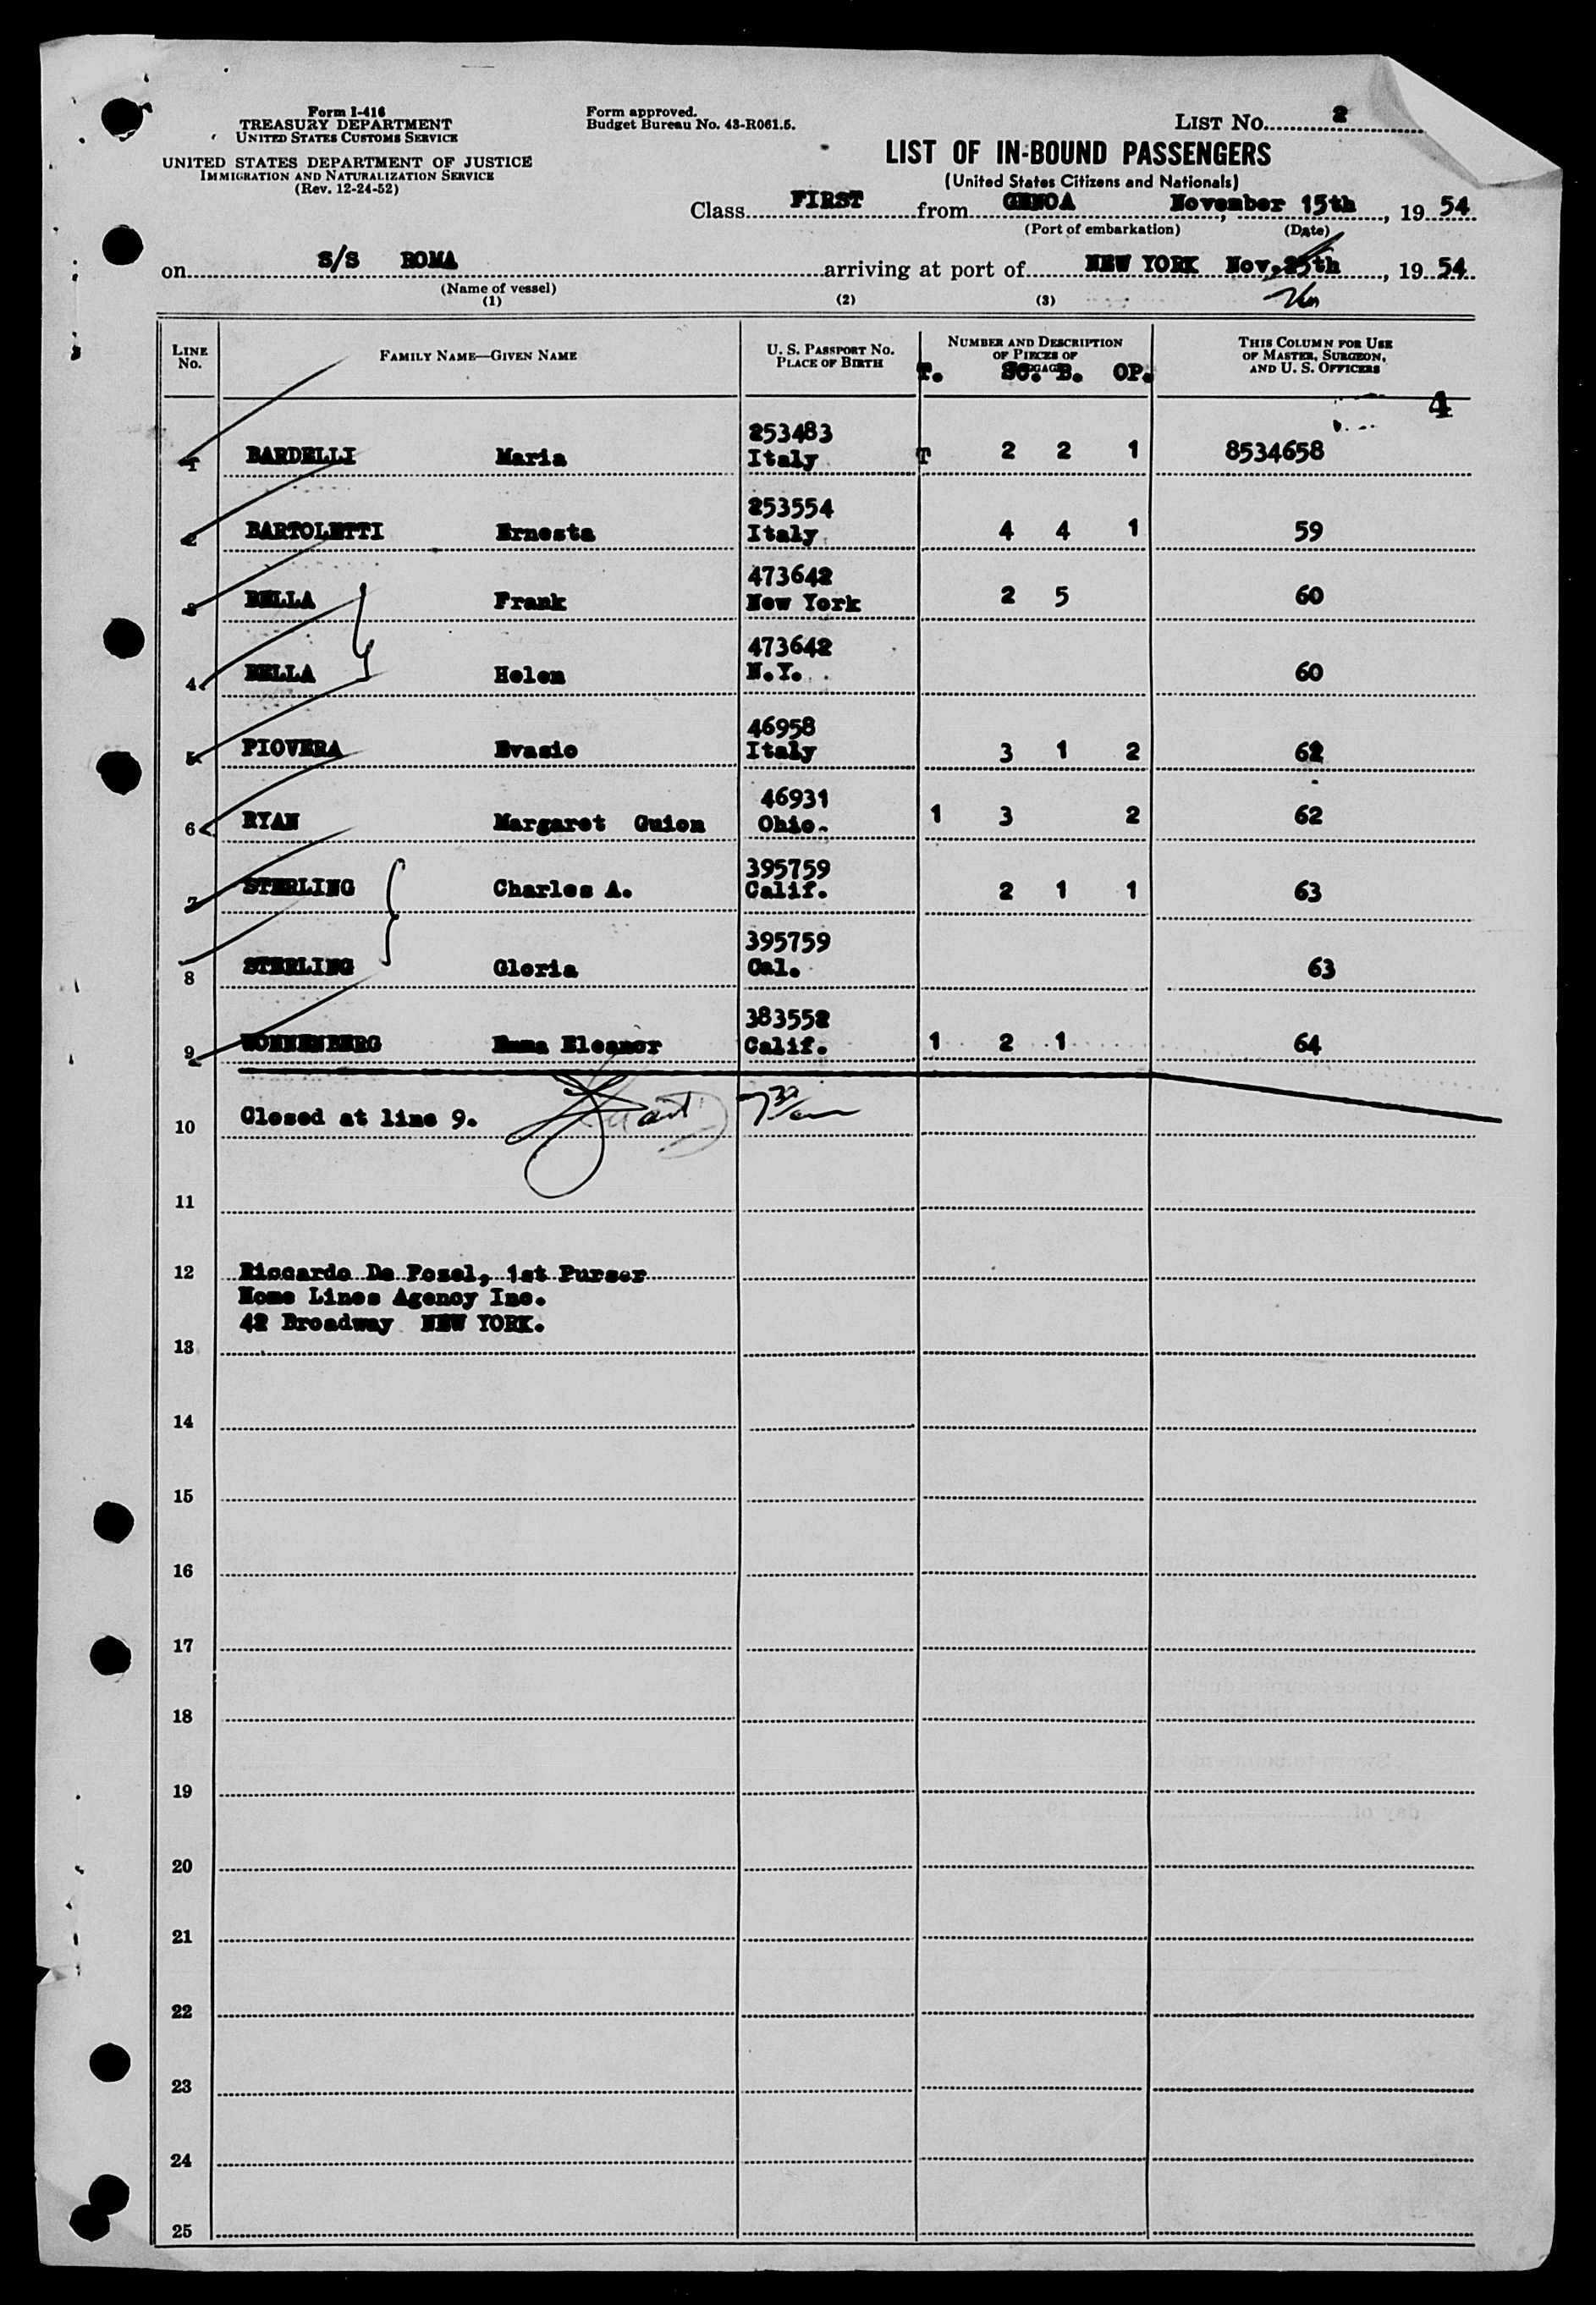 Form I-416
TREASURY DEPARTMENT
UNITED STATES CUSTOMS SERVICE
UNITED STATES DEPARTMENT OF JUSTICE
IMMIGRATION AND NATURALIZATION SERVICE
(Rev. 12-24-52)
Form approved.
Budget Bureau No. 43-R061.5.
LIST No. 2
LIST OF IN-BOUND PASSENGERS
(United States Citizens and Nationals)
Class FIRST from GENOA, November 15th, 19 54
(Port of embarkation) (Date)
on S/S ROMA arriving at port of NEW YORK Nov. 25th, 19 54
(Name of vessel)
(1) (2) (3)
LINE No. FAMILY NAME—GIVEN NAME U. S. PASSPORT No. PLACE OF BIRTH NUMBER AND DESCRIPTION OF PIECES OF THIS COLUMN FOR USE OF MASTER, SURGEON, AND U. S. OFFICERS
T. SC. B. OP.
4
253483
1 BARDELLI Maria Italy T 2 2 1 8534658
253554
2 BARTOLETTI Ernesta Italy 4 4 1 59
473642
3 BELLA Frank New York 2 5 60
473642
4 BELLA Helen N.Y. 60
46958
5 PIOVERA Evasio Italy 3 1 2
46931
6 RYAN Margaret Guion Ohio. 1 3 2 62
395759
7 STERLING Charles A. Calif. 2 1 1 63
395759
8 STERLING Gloria Cal. 63
383552
9 Emma Eleanor Calif. 1 2 1 64
10 Closed at line 9. 7 30/am
11
12 Riccardo De Pozel, 1st Purser
Home Lines Agency Inc.
42 Broadway NEW YORK.
13
14
15
16
17
18
19
20
21
22
23
24
25